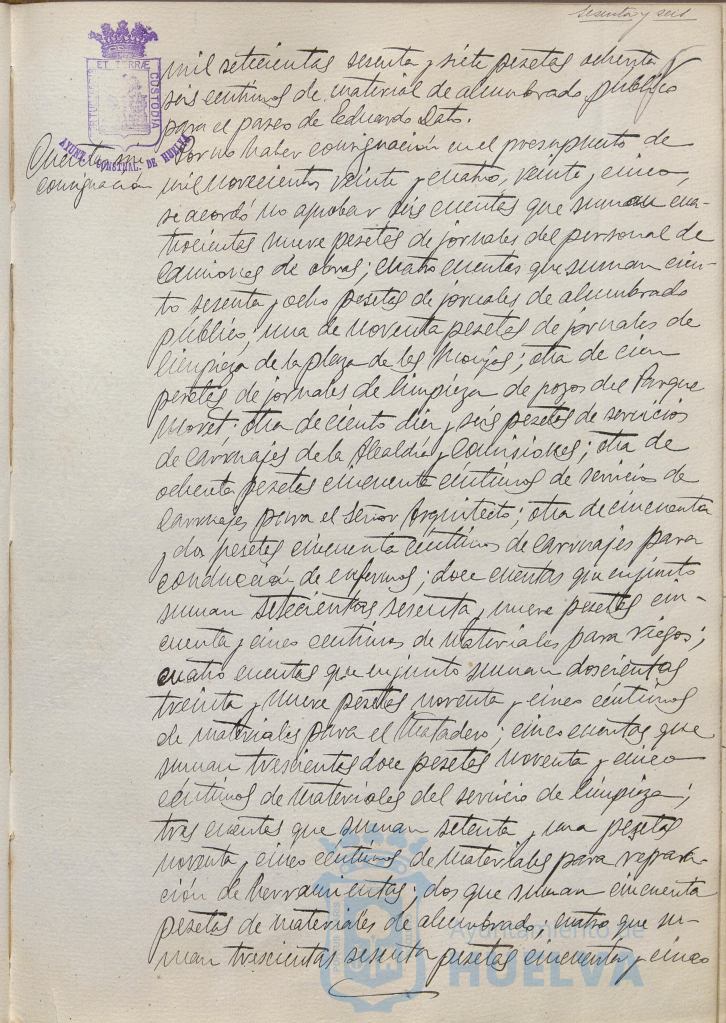 sesenta y seis
mil setecientas sesenta y siete pesetas ochenta y
seis centimos de material de alumbrado público
para el paseo de Eduardo Dato.
ET TERRÆ
CUSTODIA
AYUNT. CONSTNAL. DE HUELVA
Cuentas sin
consignación
Por no haber consignación en el presupuesto de
mil novecientos veinte y cuatro, veinte y cinco,
se acordó no aprobar seis cuentas que suman cua-
trocientas nueve pesetas de jornales del personal de
camiones de obras; cuatro cuentas que suman cien-
to sesenta y ocho pesetas de jornales de alumbrado
público, una de noventa pesetas de jornales de
limpieza de la plaza de las Monjas; otra de cien
pesetas de jornales de limpieza de pozos del Parque
Moret; otra de ciento diez y seis pesetas de servicios
de carruajes de la Alcaldía y Comisiones; otra de
ochenta pesetas cincuenta céntimos de servicios de
carruajes para el señor Arquitecto; otra de cincuenta
y dos pesetas cincuenta céntimos de carruajes para
conducción de enfermos; doce cuentas que en junto
suman setecientas sesenta y nueve pesetas cin-
cuenta y cinco centimos de materiales para riegos;
cuatro cuentas que en junto suman doscientas
treinta y nueve pesetas noventa y cinco céntimos
de materiales para el Matadero; cinco cuentas que
suman trescientas doce pesetas noventa y cinco
céntimos de materiales del servicio de limpieza;
tres cuentas que suman setenta y una pesetas
noventa y cinco céntimos de materiales para repara-
ción de herramientas; dos que suman cincuenta
pesetas de materiales de alumbrado; cuatro que su-
man trescientas sesenta pesetas cincuenta y cinco
Ayuntamiento de
HUELVA